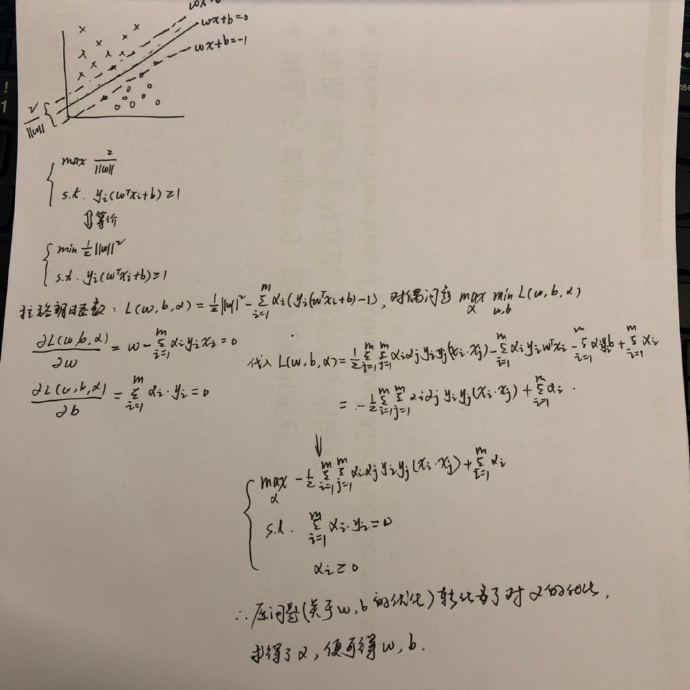 wx+b=0
wx+b=-1
2/||w||
max 2/||w||
s.t. yᵢ(wᵀxᵢ+b)≥1
⇓等价
min ½||w||²
s.t. yᵢ(wᵀxᵢ+b)≥1
拉格朗日函数: L(w,b,α) = ½||w||² - Σᵢ₌₁ᵐ αᵢ(yᵢ(wᵀxᵢ+b)-1), 对偶问题 max_α min_{w,b} L(w,b,α)
∂L(w,b,α)/∂w = w - Σᵢ₌₁ᵐ αᵢyᵢxᵢ = 0
∂L(w,b,α)/∂b = Σᵢ₌₁ᵐ αᵢ·yᵢ = 0
代入 L(w,b,α) = ½Σᵢ₌₁ᵐΣⱼ₌₁ᵐ αᵢαⱼyᵢyⱼ(xᵢ·xⱼ) - Σᵢ₌₁ᵐ αᵢyᵢwᵀxᵢ - Σᵢ₌₁ᵐ αᵢyᵢb + Σᵢ₌₁ᵐ αᵢ
= -½Σᵢ₌₁ᵐΣⱼ₌₁ᵐ αᵢαⱼyᵢyⱼ(xᵢ·xⱼ) + Σᵢ₌₁ᵐ αᵢ.
⇓
max_α -½Σᵢ₌₁ᵐΣⱼ₌₁ᵐ αᵢαⱼyᵢyⱼ(xᵢ·xⱼ) + Σᵢ₌₁ᵐ αᵢ
s.t. Σᵢ₌₁ᵐ αᵢ·yᵢ=0
αᵢ≥0
∴原问题(关于w,b的优化)转化为了对α的优化,
求得了α,便可得w,b.